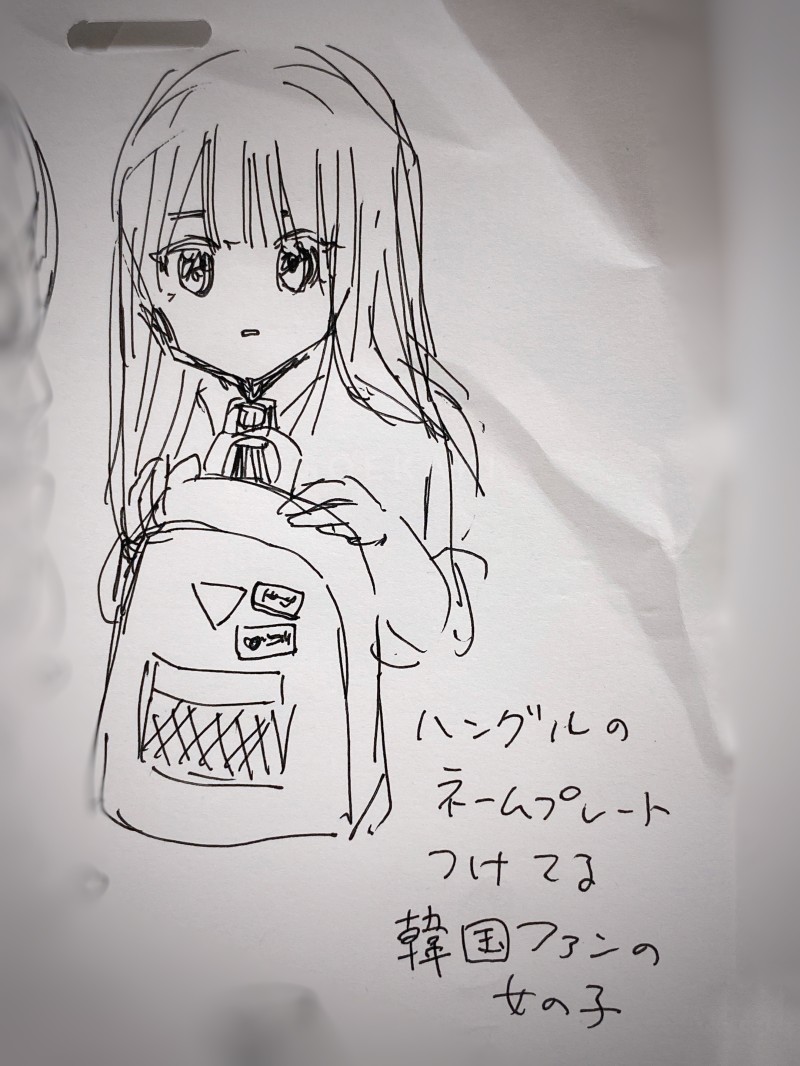 ハングルの
ネームプレート
つけてる
韓国ファンの
女の子